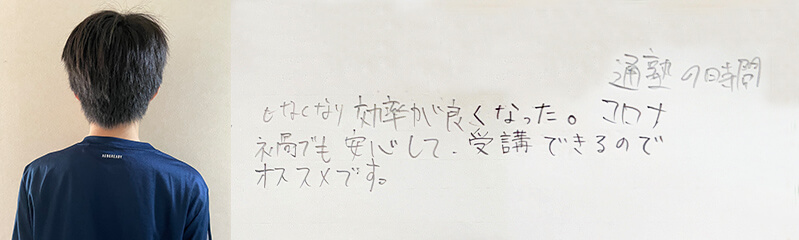 通塾の時間
もなくなり効率が良くなった。コロナ
禍でも安心して、受講できるので
オススメです。